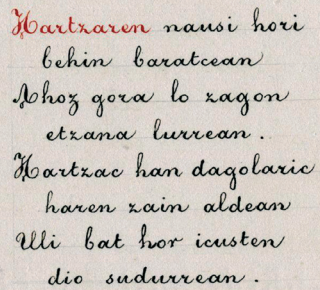 Hartzaren nausi hori
behin baratcean
Ahoz gora lo zagon
etzana lurrean.
Hartzac han dagolaric
haren zain aldean
Uli bat hor icusten
dio sudurrean.